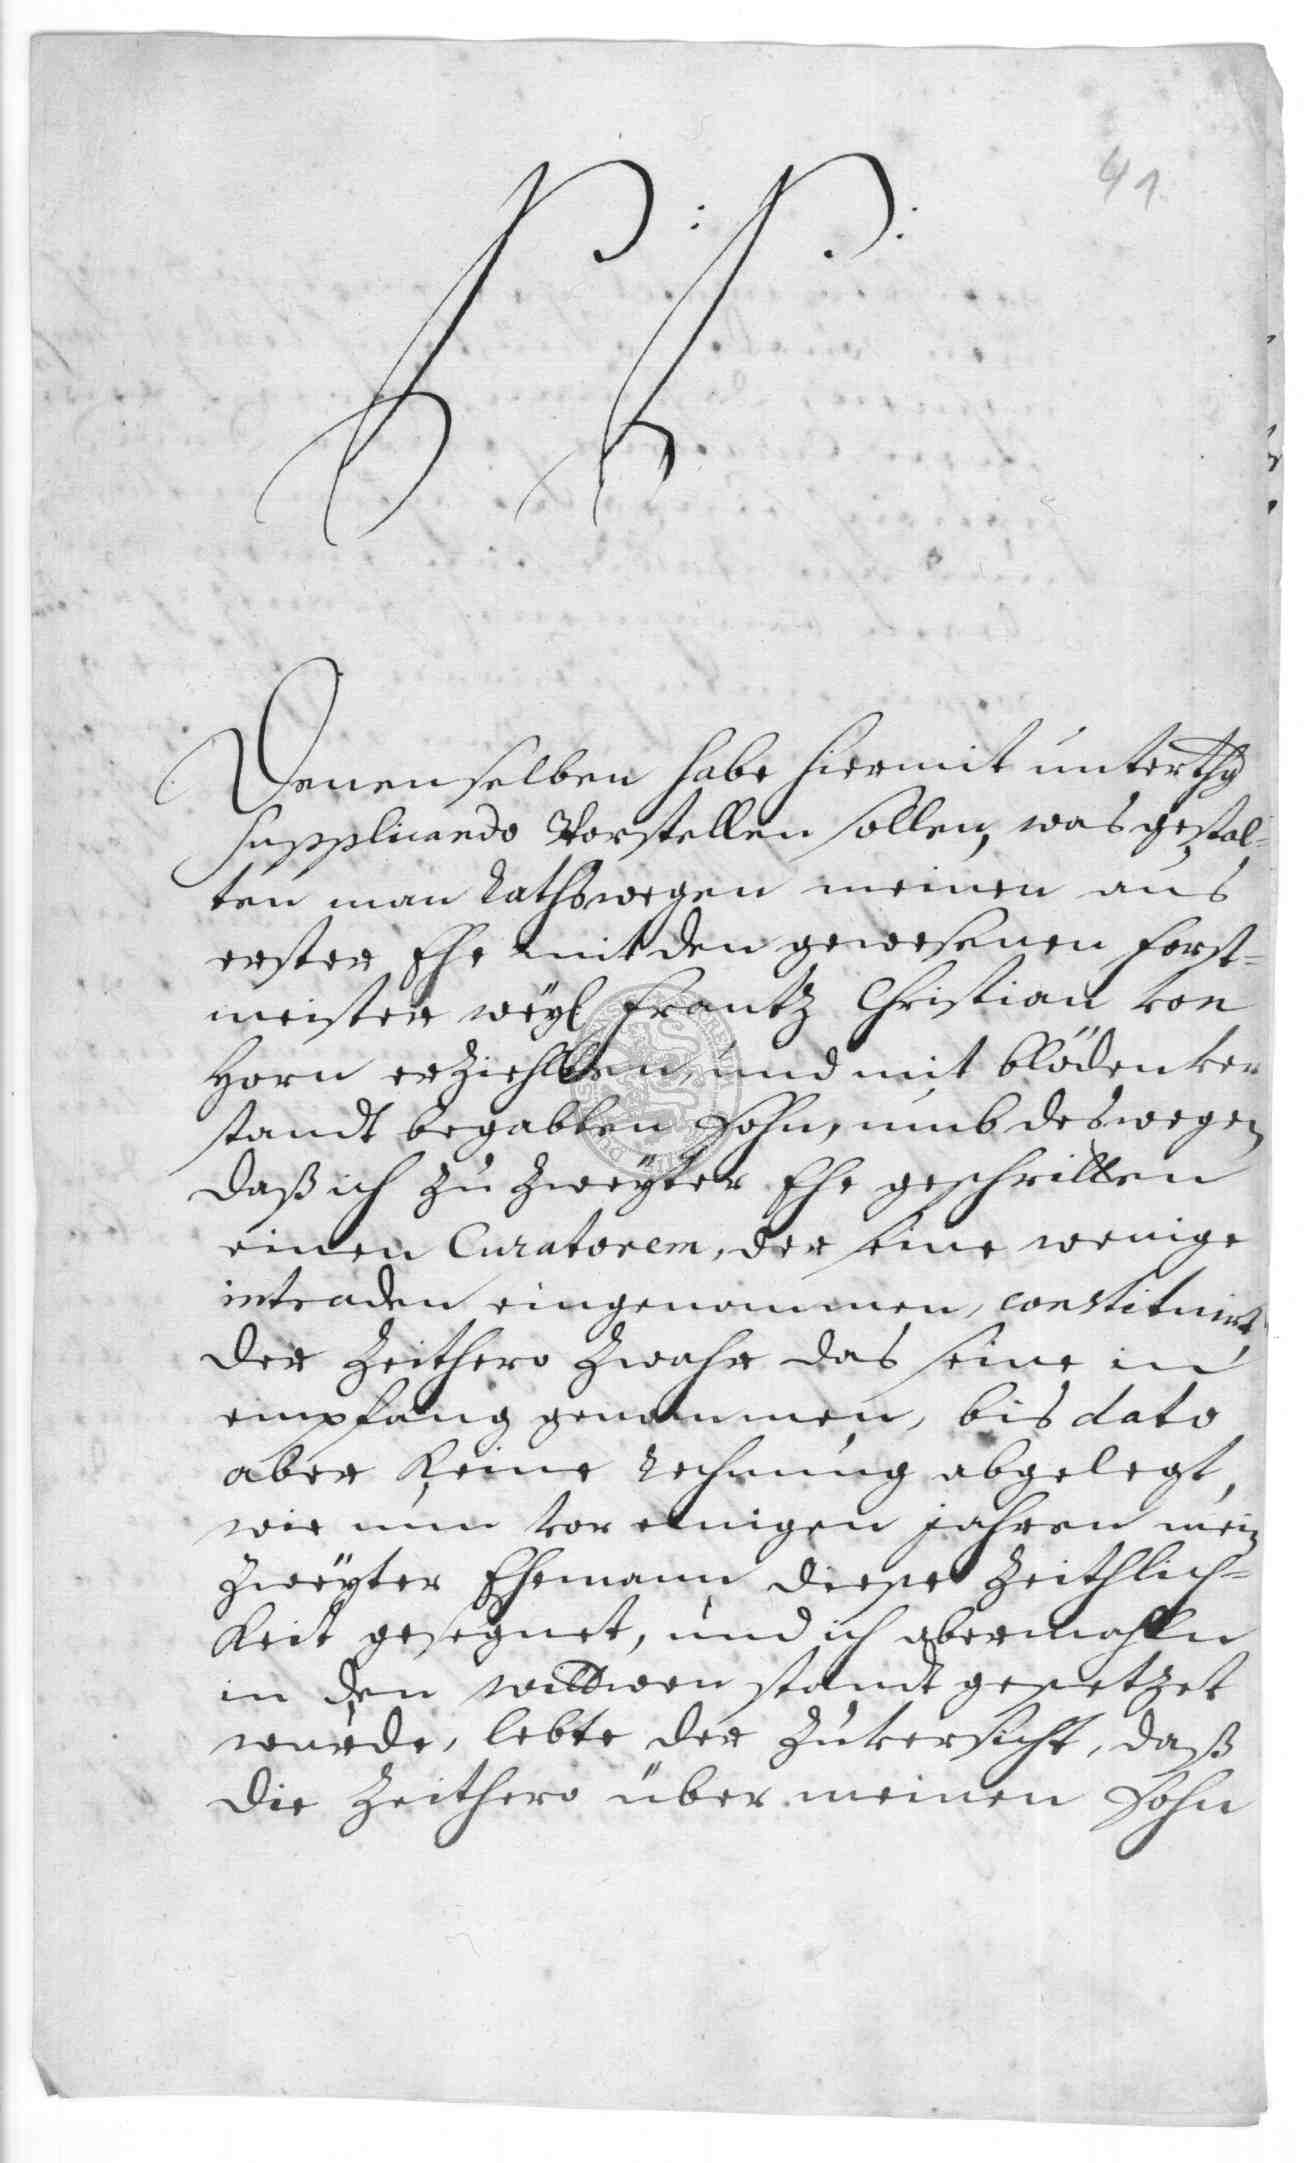 41.
P: P:
Denenselben habe hiermit unterthg
supplicando Vorstellen sollen, was gestal-
ten man Rathswegen meinen aus
erster Ehe mit den gewesenen Forst-
meister weyl Frantz Christian von
Horn erziehlten, und mit blöden ver
standt begabten Sohn, umb deswegen
daß ich zu zweÿter Ehe geschritten
einen Curatorem, der seine wenige
intraden eingenommen, constituirt,
der Zeithero zwahr das seine in
empfang genommen, bis dato
aber keine Rechnung abgelegt,
wie nun vor einigen jahren mein
zweÿter Ehemann diese Zeithlich-
keit gesegnet, und ich abermahln
in den wittwen standt gesetzet
wurde, lebte der Zuversicht, daß
die Zeithero über meinen Sohn